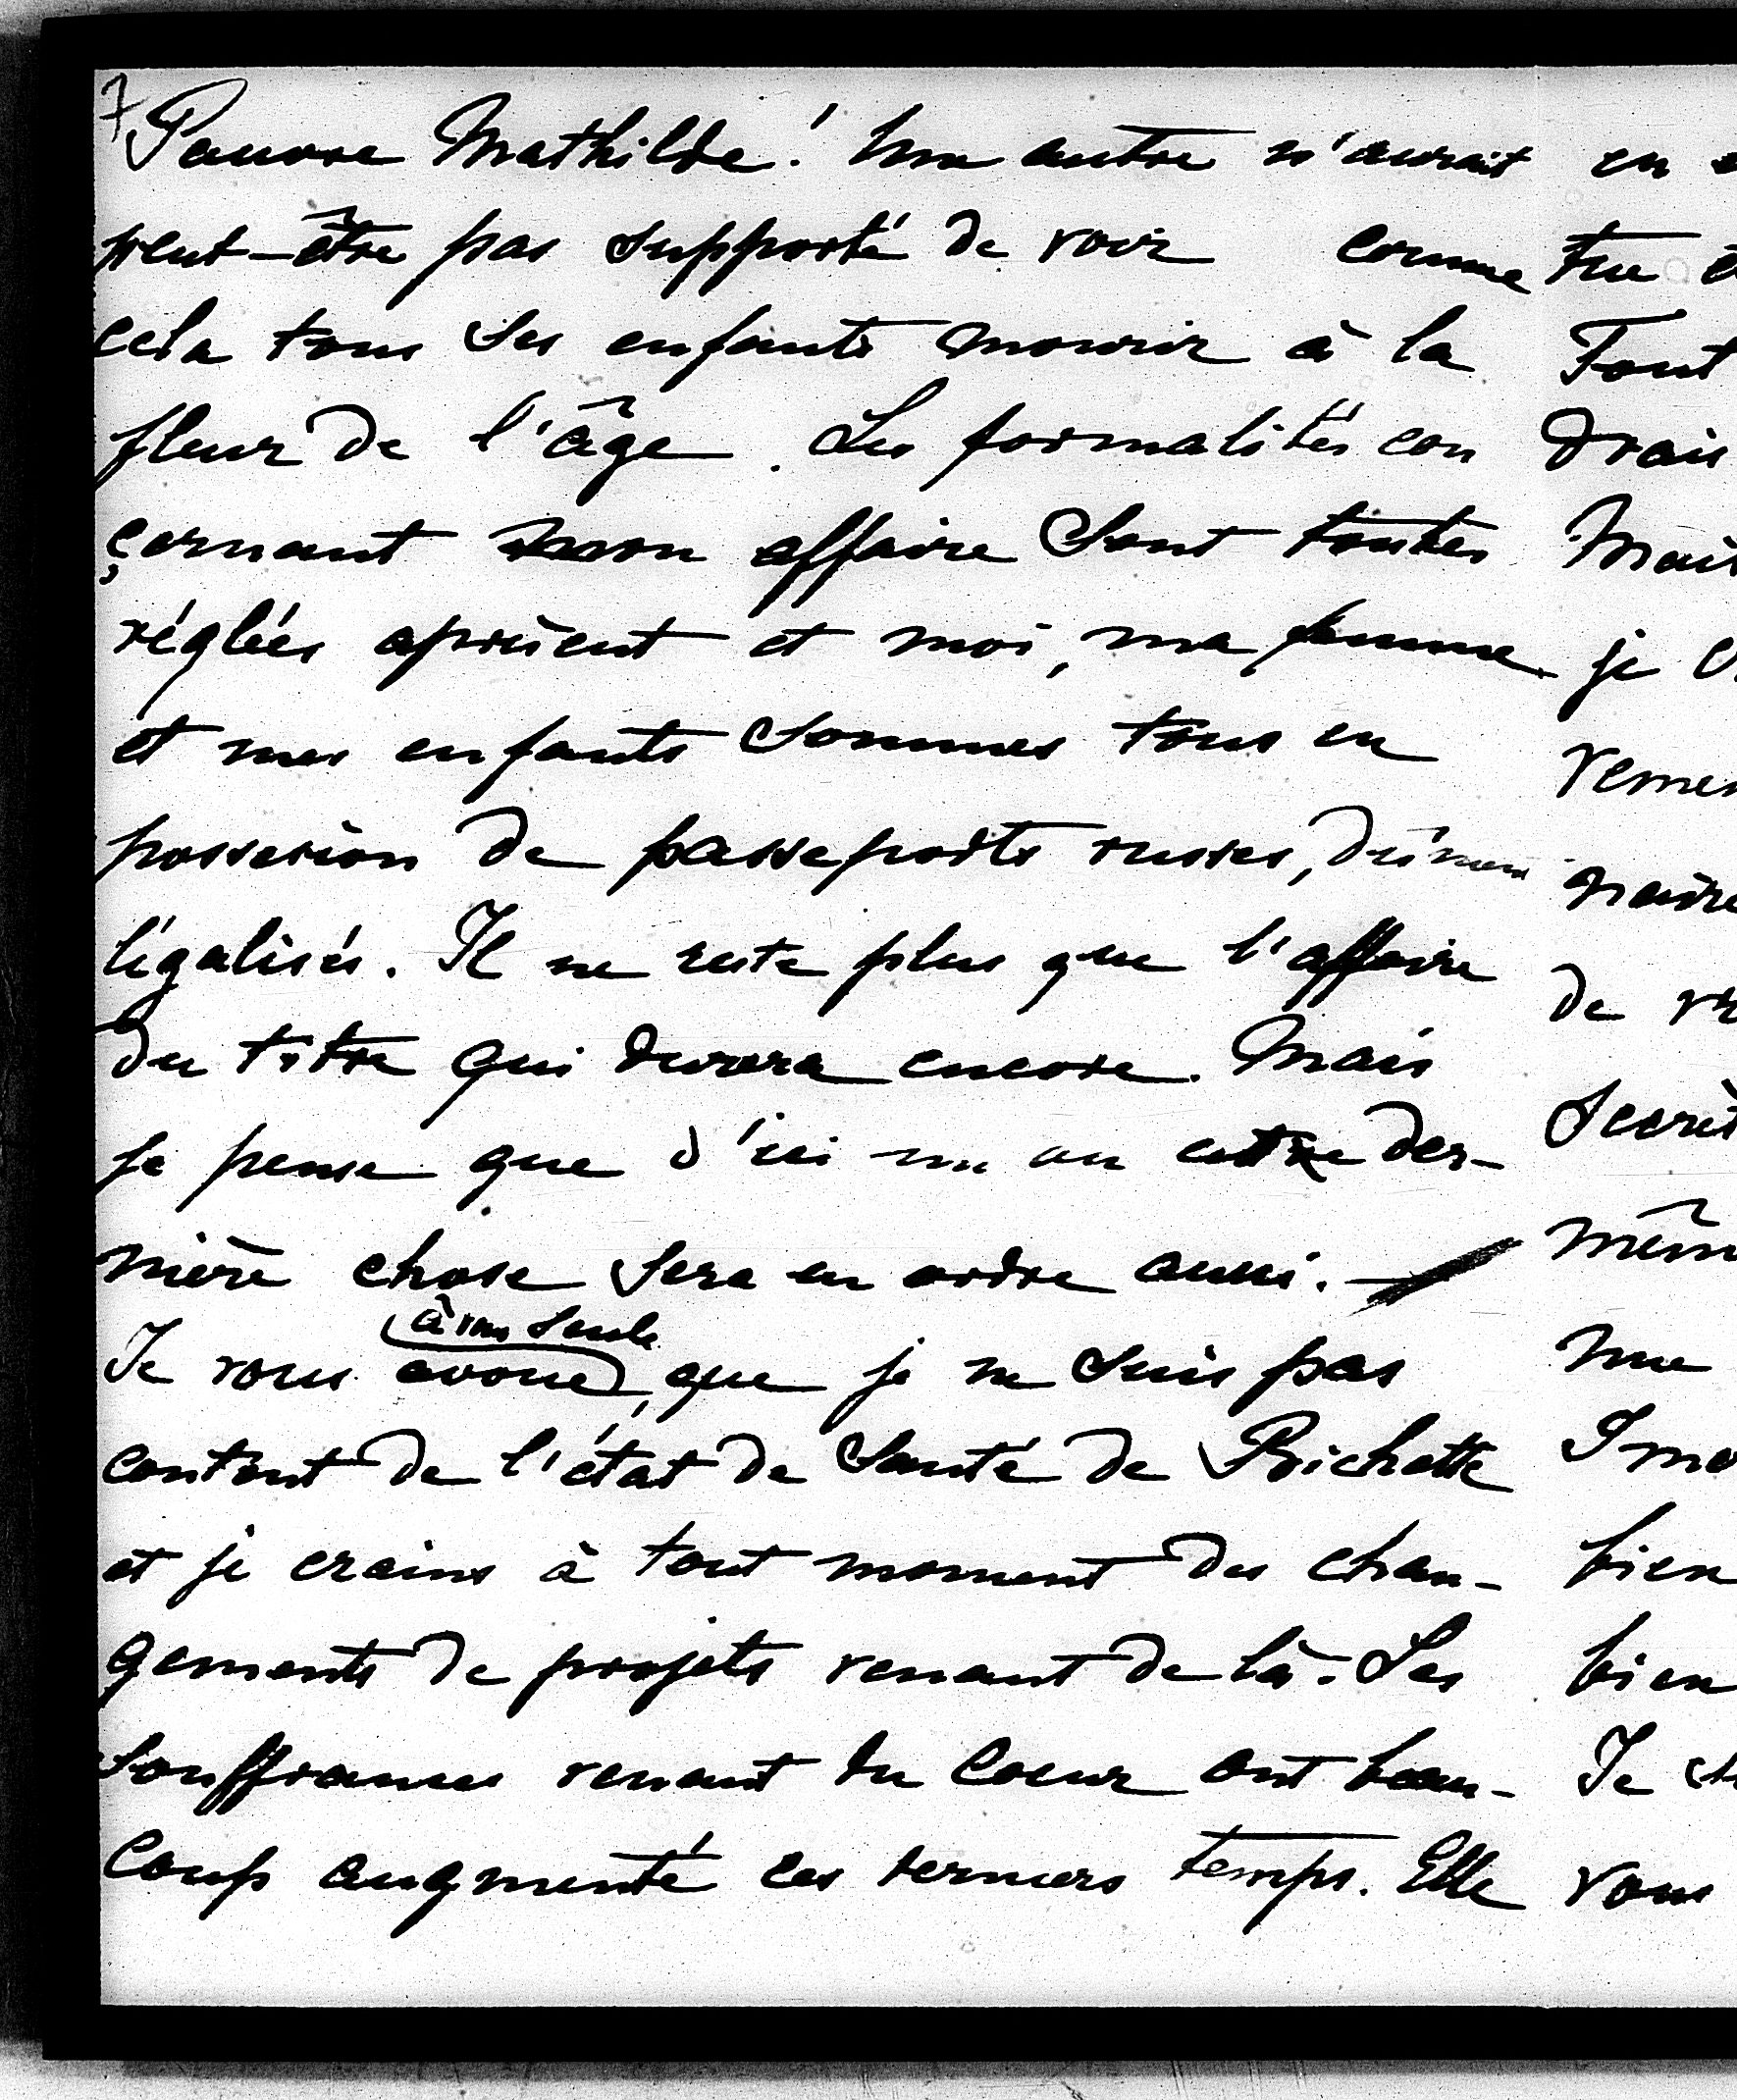 7
Pauvre Mathilde! Une autre n'aurait
peut-être pas supporté de voir comme
cela tous ses enfants mourir à la
fleur de l'âge. Les formalités con
çernant mon affaire sont toutes
réglées et moi, ma femme
et mes enfants sommes tous en
possesion de passeports russes, dûment
légalisés. Il ne reste plus que l'affaire
du titre qui durera encore. Mais
je pense que d'ici un an cette der-
nière chose sera en ordre aussi.
à vous seule
Je vous avoue, que je ne suis pas
content de l'état de santé de Bichette
et je crains à tout moment des chan-
gements de projets venant de là. Les
souffrances venant du coeur ont beau-
coup augmenté ces derniers temps. Elle
en
tue
Tout
drais
Mais
je
remen
naire
de
Secrét
mêm
une
Imo
bien
bien
Je
vous